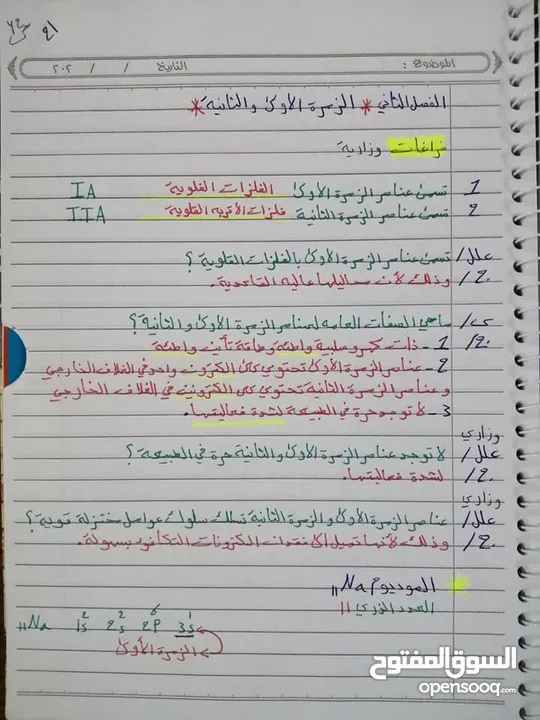 الموضوع : التاريخ / / ٢٠٢
الفصل الثاني * الزمرة الأولى والثانية *
فراغات وزارية
1 تسمى عناصر الزمرة الأولى الفلزات القلوية IA
2 تسمى عناصر الزمرة الثانية فلزات الأتربة القلوية IIA
علل/ تسمى عناصر الزمرة الأولى بالفلزات القلوية ؟
ج/ وذلك لأن محاليلها عالية القاعدية.
س/ ماهي الصفات العامة لعناصر الزمرة الأولى والثانية ؟
ج/ 1- ذات كهروسلبية واطئة وطاقة تأين واطئة
2- عناصر الزمرة الأولى تحتوي على الكترون واحد في الغلاف الخارجي
وعناصر الزمرة الثانية تحتوي على الكترونين في الغلاف الخارجي
3- لا توجد حرة في الطبيعة لشدة فعاليتها.
وزاري
علل/ لا توجد عناصر الزمرة الأولى والثانية حرة في الطبيعة ؟
ج/ لشدة فعاليتها.
وزاري
علل/ عناصر الزمرة الأولى والزمرة الثانية تسلك سلوك عوامل مختزلة قوية ؟
ج/ وذلك لأنها تميل الى فقدان الكترونات التكافؤ بسهولة.
* الصوديوم ₁₁Na
العدد الذري 11
₁₁Na 1s² 2s² 2p⁶ 3s¹
الزمرة الأولى
السوق المفتوح
opensooq.com